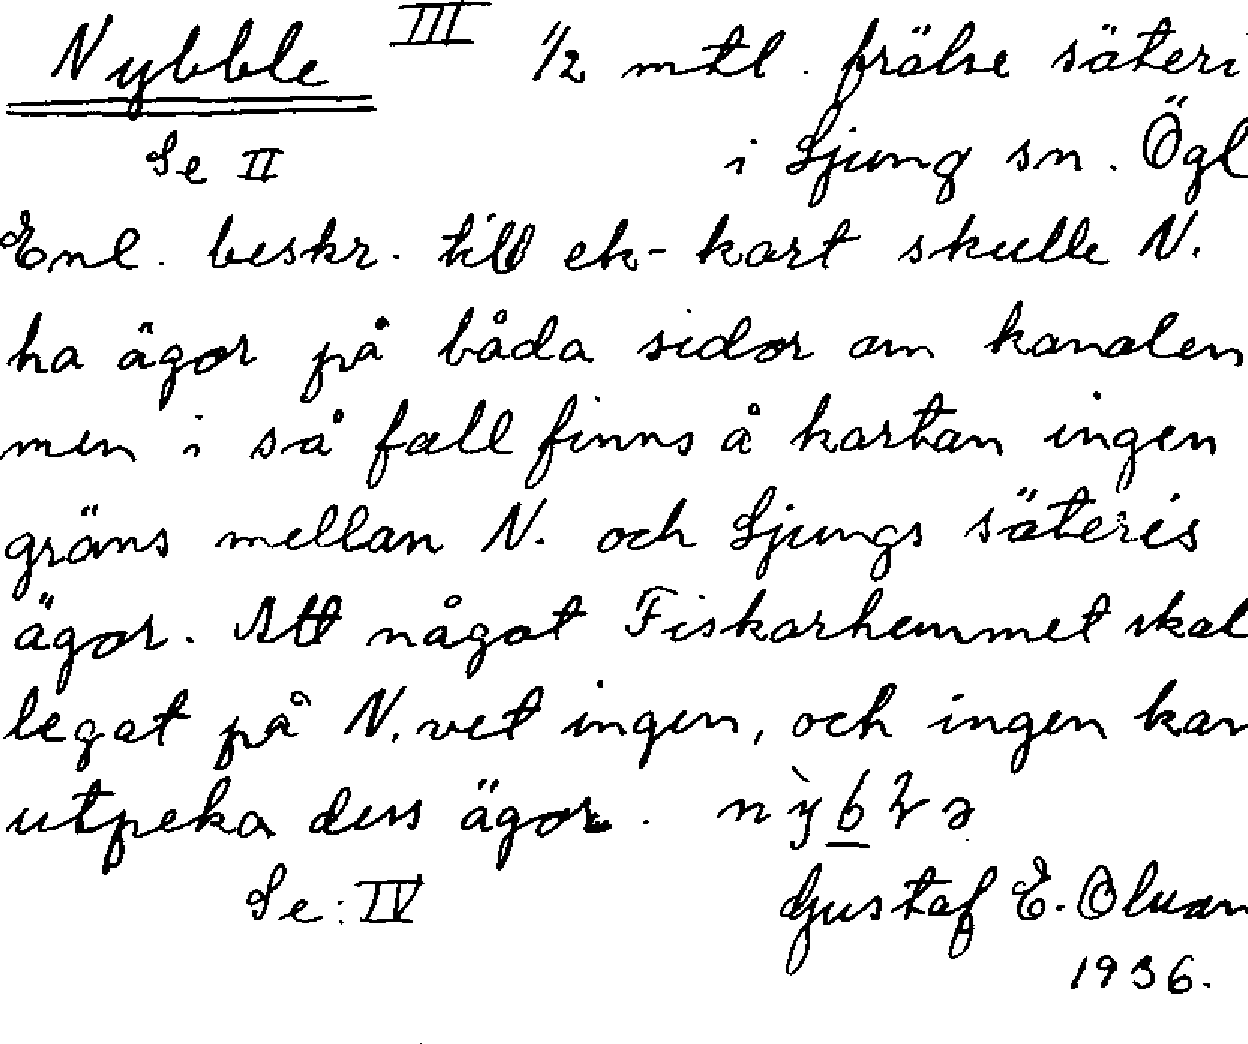 Nybble III 1/2 mtl. frälse säteri
Se II i Ljung sn. Ögl
Enl. beskr. till ek-kart skulle N.
ha ägor på båda sidor om kanalen
men i så fall finns å kartan ingen
gräns mellan N. och Ljungs säteris
ägor. Att något Fiskarhemmet skal
legat på N. vet ingen, och ingen kan
utpeka dess ägor.
Se: IV Gustaf E. Olsson
1936.